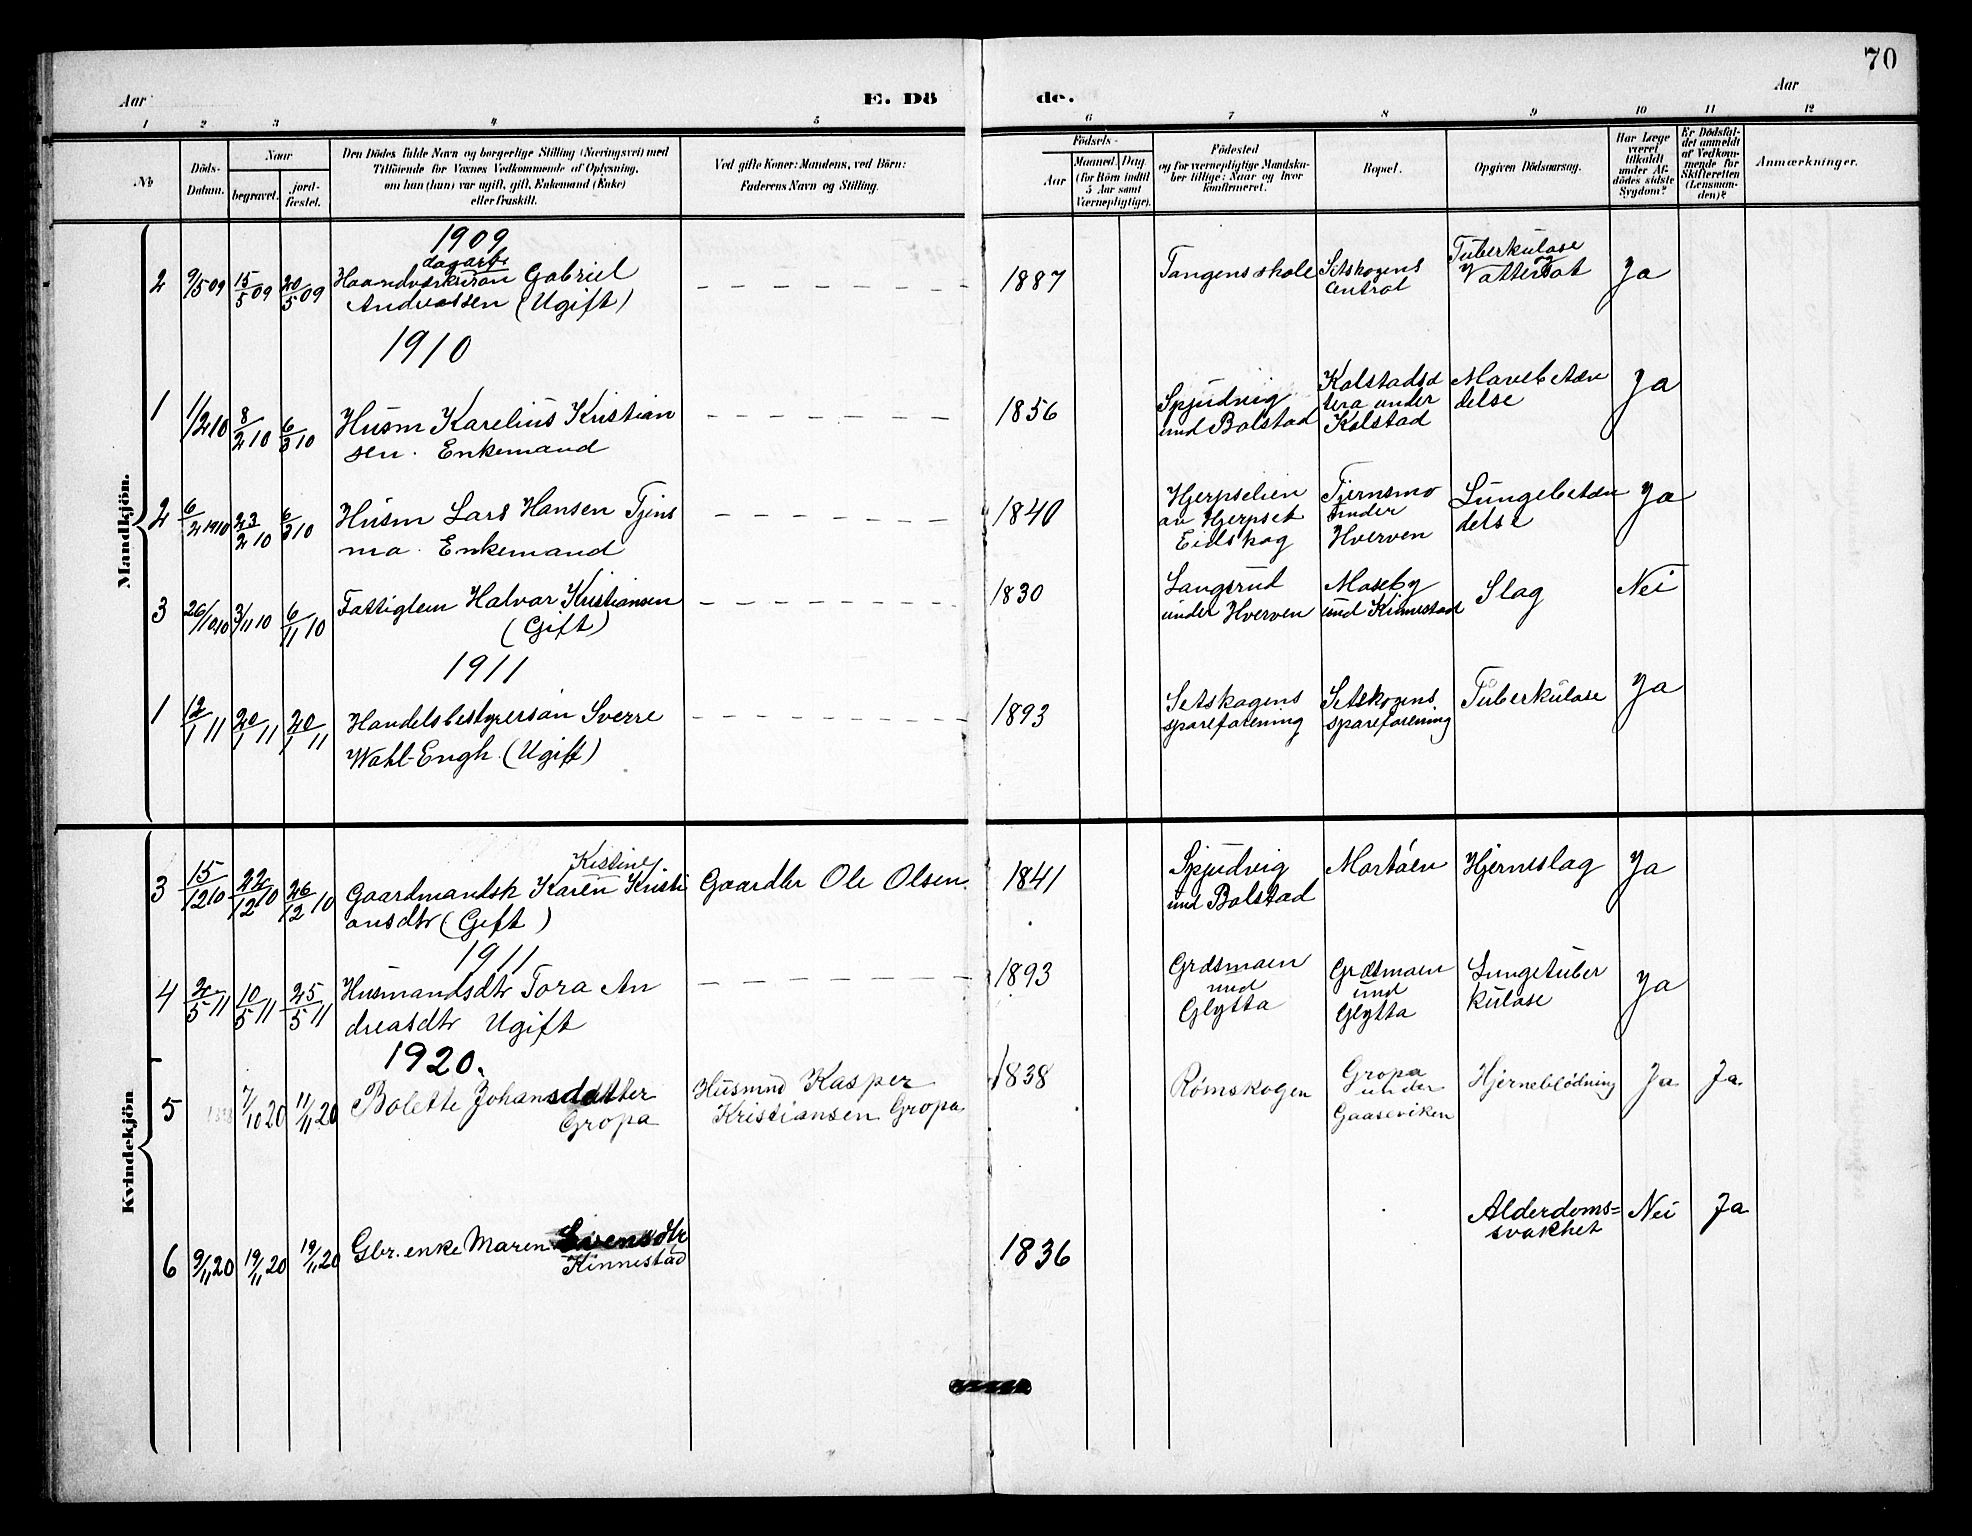 70
Aar
E. Dö
de.
Aar
1 2 3 4 5 6 7 8 9 10 11 12
No
Döds-
Datum.
Naar
begravet.
jord-
fæstet.
Den Dödes fulde Navn og borgerlige Stilling (Næringsvei) med
Tilföiende for Voxnes Vedkommende af Oplysning,
om han (hun) var ugift, gift, Enkemand (Enke)
eller fraskilt.
Ved gifte Koner: Mandens, ved Börn:
Faderens Navn og Stilling.
Födsels-
Aar
Maaned. Dag.
(for Börn indtil
5 Aar samt
Værnepligtige).
Födested
og for værnepligtige Mandska-
ber tillige: Naar og hvor
konfirmeret.
Bopæl.
Opgiven Dödsaarsag.
Har Læge
været
tilkaldt
under Af-
dödes sidste
Sygdom?
Er Dödsfal-
det anmeldt
af Vedkom-
mende for
Skifteretten
(Lensman-
den)?
Anmærkninger.
Mandkjön.
1909
2 9/5 09 15/5 09 20/5 09
dagarb.
Haandværkersøn Gabriel
Andreassen (Ugift)
1887
Tangens skole
Setskogens
Central
Tuberkulose
og
Vattersot
Ja
1910
1 1/2 10 8/2 10 6/3 10
Husm Karelius Kristian
sen. Enkemand
1856
Spjudvig
und Bolstad
Kolstadsæ
tera under
Kolstad
Mavebetæn
delse
Ja
2 6/2 1910 23/2 10 6/3 10
Husm Lars Hansen Tjins
mo. Enkemand
1840
Hjerpselien
av Hjerpset
Eidskog
Tjernsmo
under
Hverven
Lungebetæn
delse
Ja
3 26/10 10 3/11 10 6/11 10
Fattiglem Halvor Kristiansen
(Gift)
1830
Langsrud
under Hverven
Moseby
und Kinnestad
Slag
Nei
1911
1 12/1 11 20/1 11 20/1 11
Handelsbestyrersøn Sverre
Wahl-Engh. (Ugift)
1893
Setskogens
spareforening
Setskogens
spareforening
Tuberkulose
Ja
Kvindekjön
3 15/12 10 22/12 10 26/12 10
Kistine
Gaardmandsk Karen Kristi
ansdtr (Gift)
Gaardbr Ole Olsen
1841
Spjudvig
und Bolstad
Mortóen
Hjerneslag
Ja
1911
4 2/5 11 10/5 11 25/5 11
Husmandsdtr Tora An
dreasdtr Ugift
1893
Græsmoen
und
Glytta
Græsmoen
und
Glytta
Lungetuber
kulose
Ja
1920.
5 7/10 20 11/11 20
Bolette Johansdatter
Gropa
Husmnd Kasper
Kristiansen Gropa
1838
Rømskogen
Gropa
under
Gaaseviken
Hjerneblödning
Ja
Ja
6 9/11 20 19/11 20 19/11 20
Gbr. enke Maren Svensdtr
Kinnestad
1836
Alderdoms=
svakhet
Nei
Ja